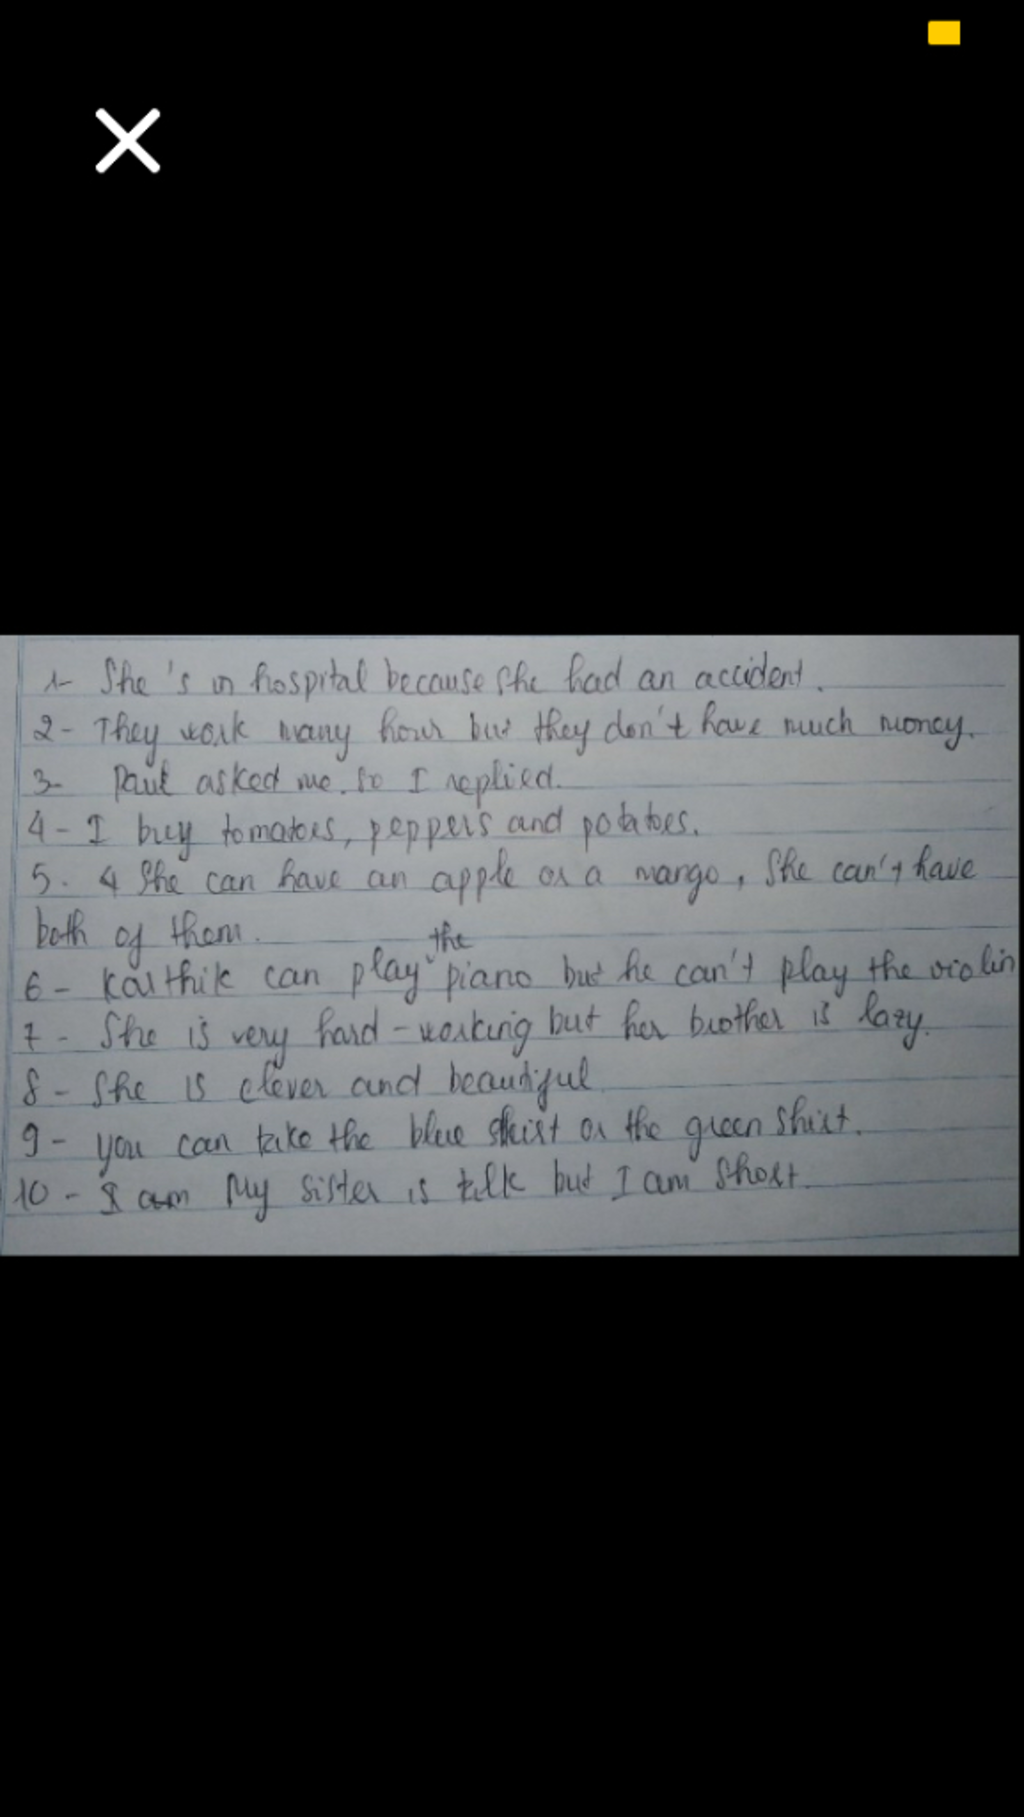 1- She's in hospital because she had an accident.
2- They work many hour but they don't have much money.
3- Paul asked me. so I replied.
4- I buy tomatoes, peppers and potatoes.
5. 4 She can have an apple or a mango, She can't have
both of them.
6- Karthik can play the piano but he can't play the violin
7- She is very hard-working but her brother is lazy.
8- She is clever and beautiful
9- you can take the blue shirt or the green shirt.
10- I am My sister is talk but I am short.